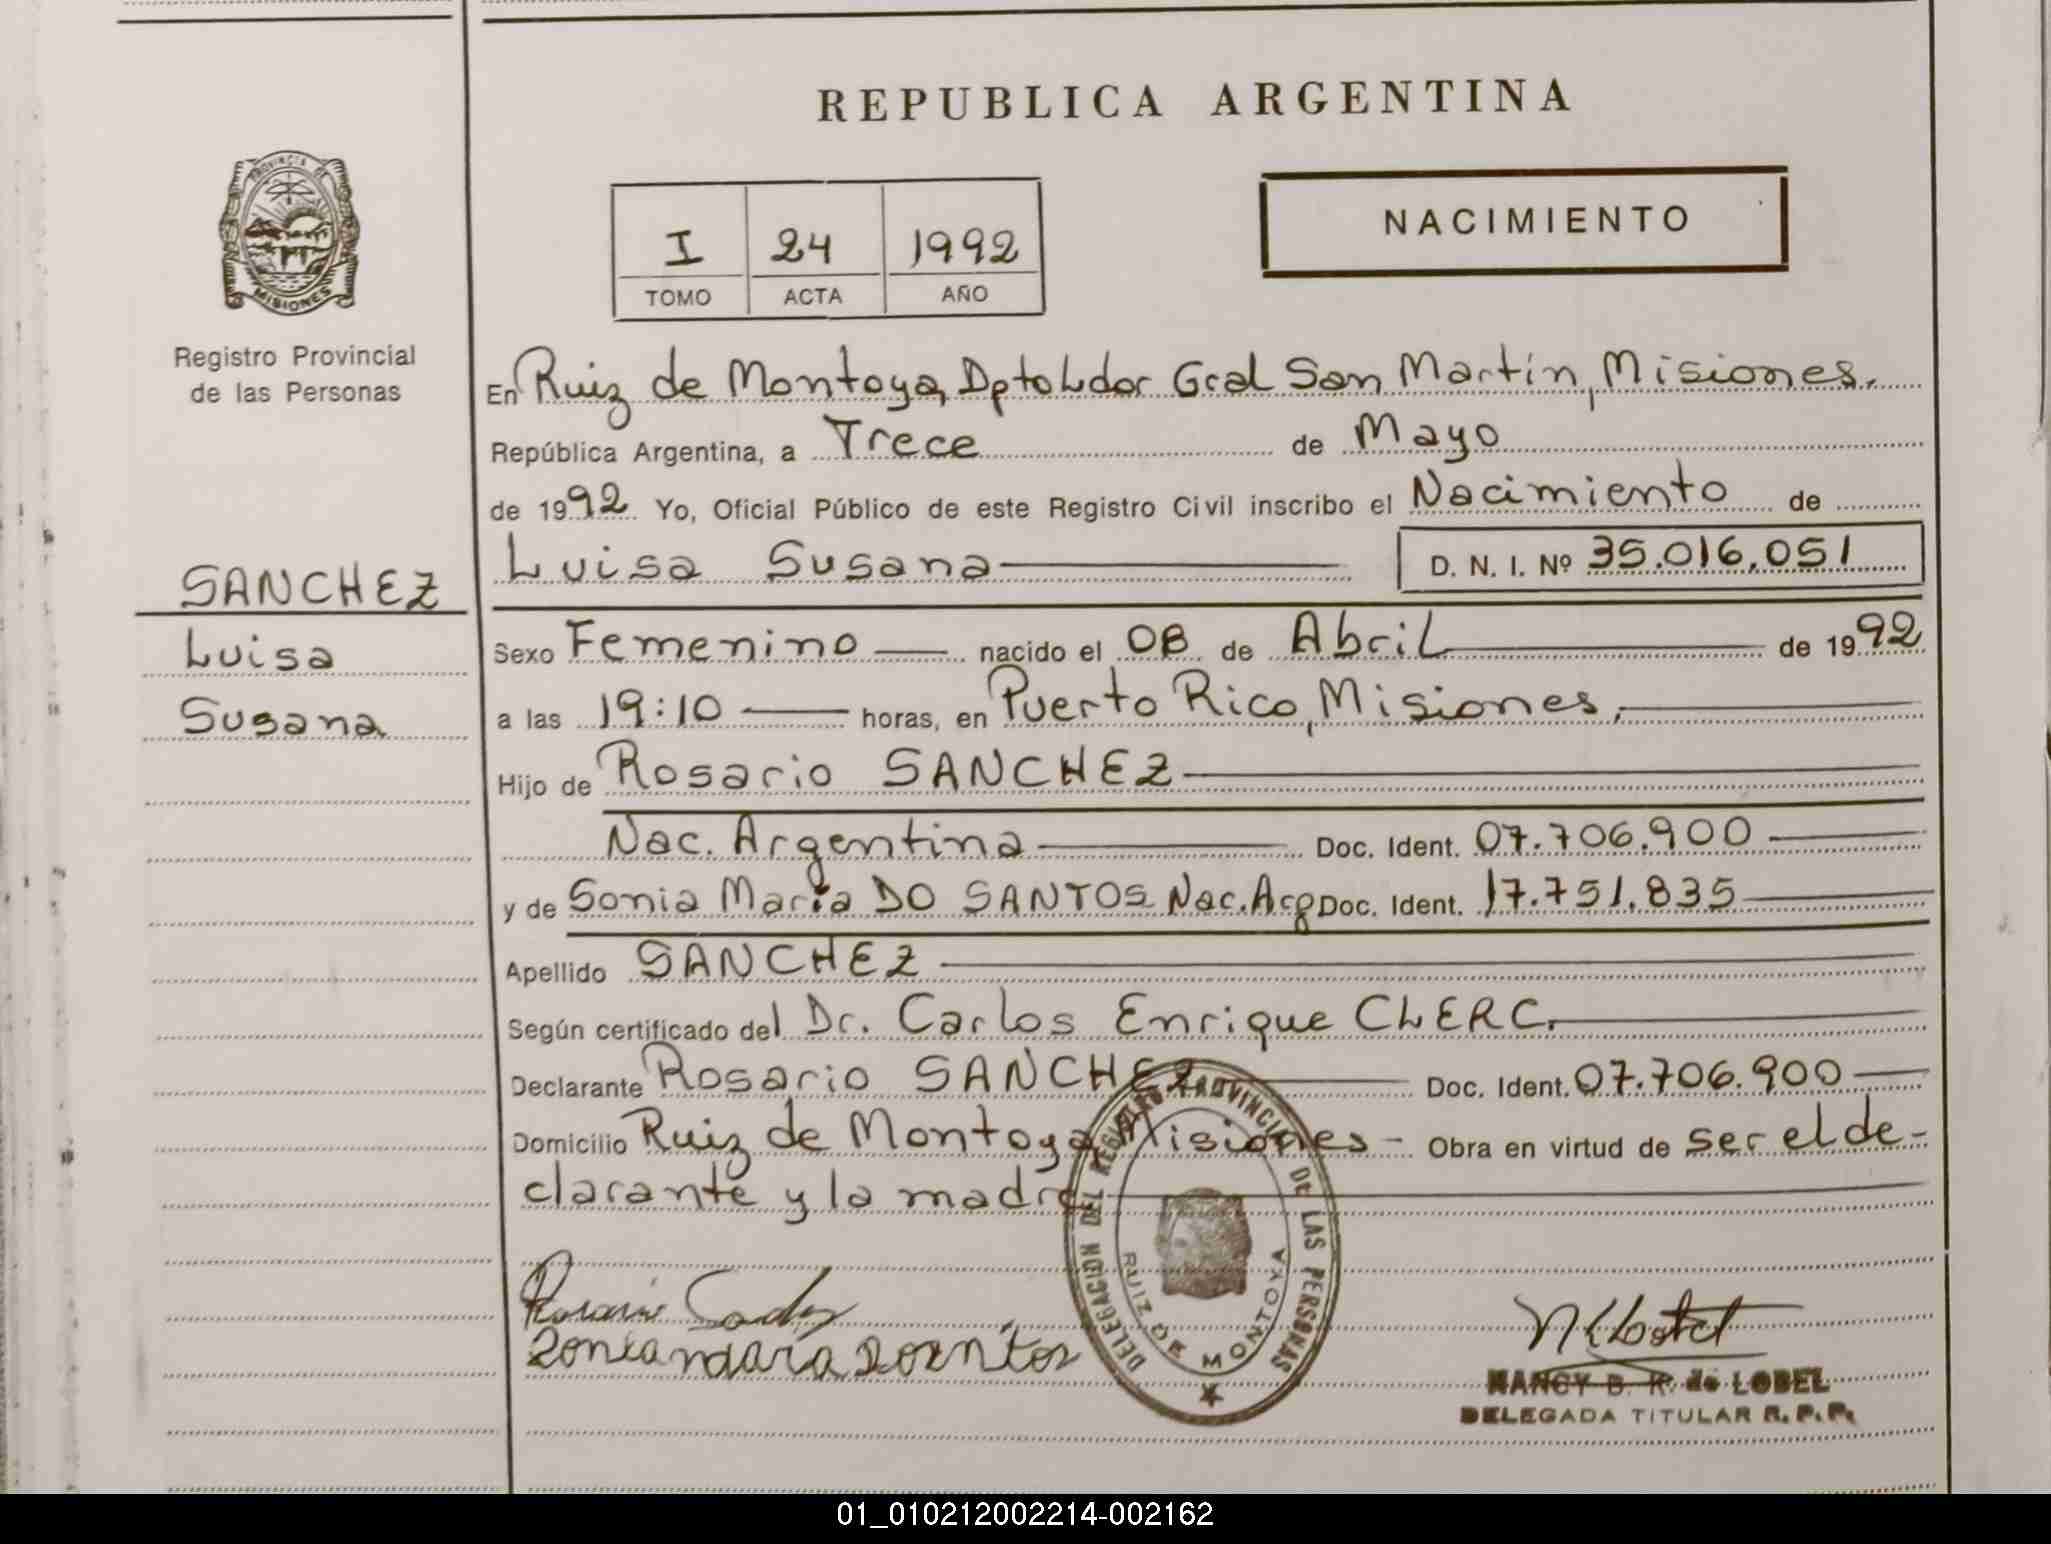 REPUBLICA ARGENTINA
PROVINCIA DE
MISIONES
Registro Provincial
de las Personas
I 24 1992
TOMO ACTA AÑO
NACIMIENTO
En Ruiz de Montoya, Dpto Ldor Gral San Martín, Misiones.
República Argentina, a Trece de Mayo
de 1992 Yo, Oficial Público de este Registro Civil inscribo el Nacimiento de
Luisa Susana D. N. I. Nº 35.016.051
SANCHEZ
Luisa
Susana
Sexo Femenino nacido el 08 de Abril de 1992
a las 19:10 horas, en Puerto Rico, Misiones.
Hijo de Rosario SANCHEZ
Nac. Argentina Doc. Ident. 07.706.900
y de Sonia María DO SANTOS Nac. Arg Doc. Ident. 17.751.835
Apellido SANCHEZ
Según certificado del Dr. Carlos Enrique CLERC.
Declarante Rosario SANCHEZ Doc. Ident. 07.706.900
Domicilio Ruiz de Montoya Misiones - Obra en virtud de ser el de-
clarante y la madre
DELEGACION DEL REGISTRO PROVINCIAL DE LAS PERSONAS
RUIZ DE MONTOYA
NANCY B. R. de LOBEL
DELEGADA TITULAR R. P. P.
01_010212002214-002162